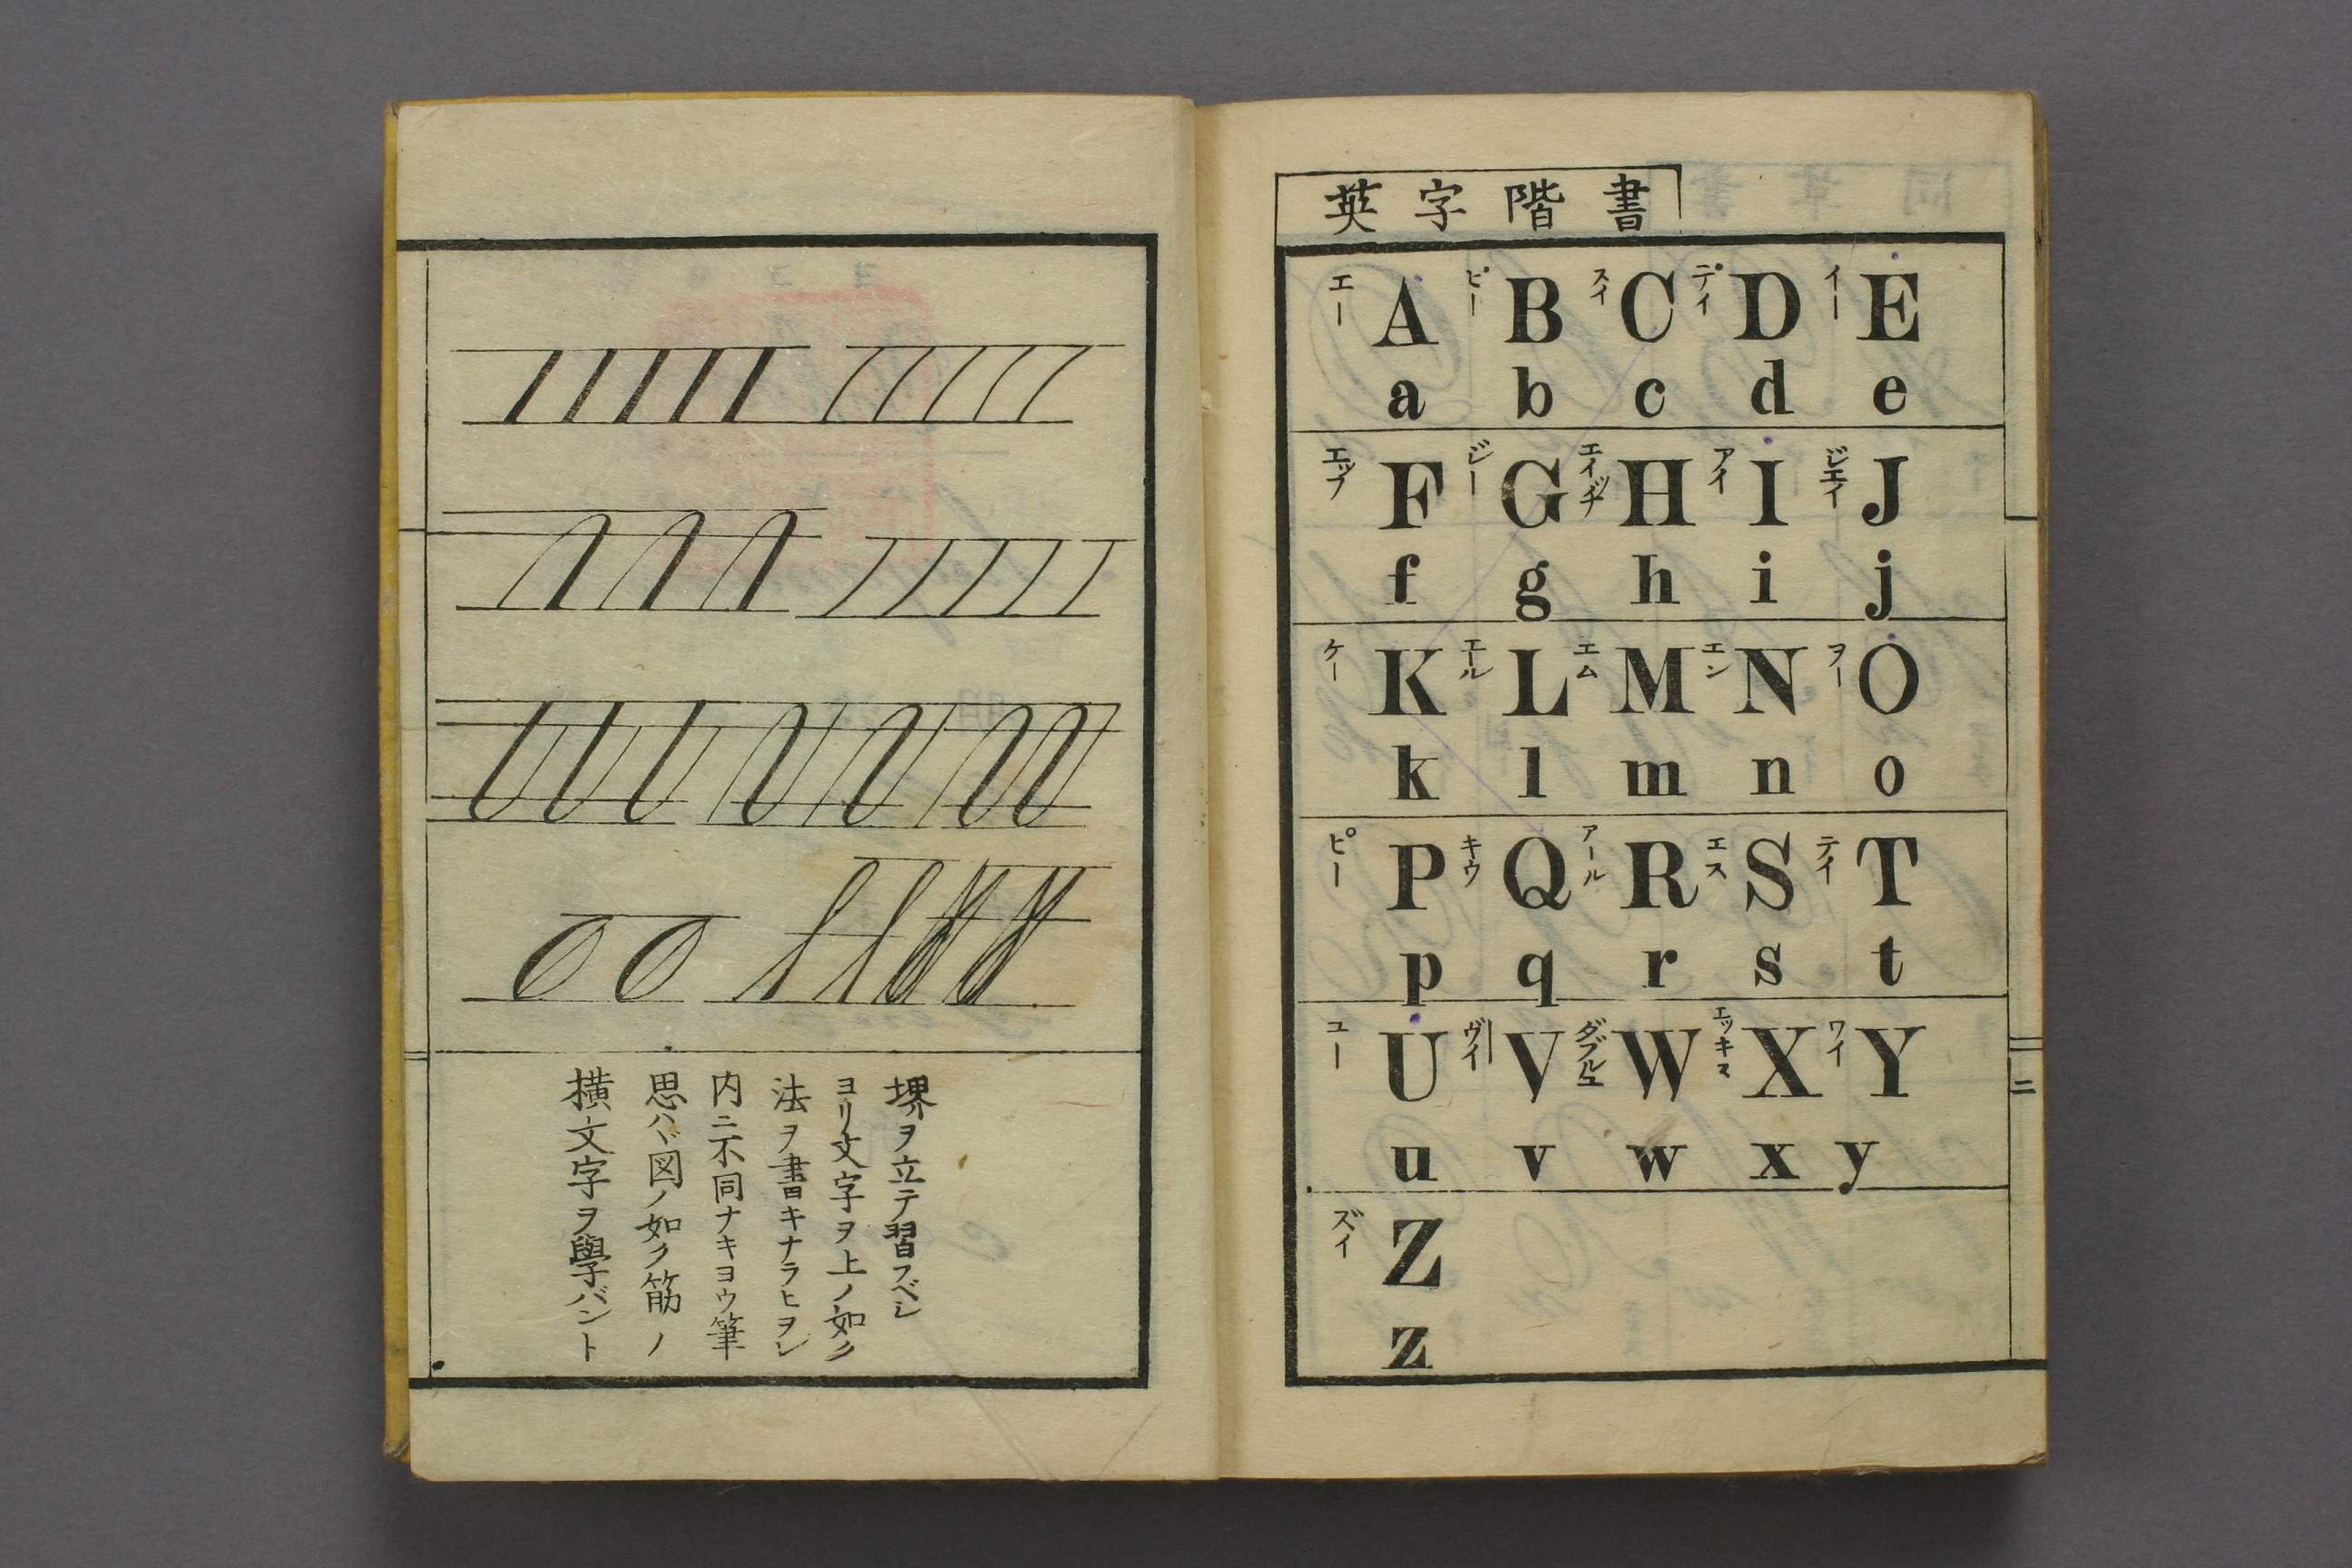 横文字ヲ學バント
思ハヾ図ノ如ク筋ノ
内ニ不同ナキヨウ筆
法ヲ書キナラヒヲレ
ヨリ文字ヲ上ノ如ク
堺ヲ立テ習フベシ
英字階書
エー A ビー B スイ C デイ D イー E
a b c d e
エッフ F ジー G エイッチ H アイ I ジエイ J
f g h i j
ケー K エール L エム M エン N ヲー O
k l m n o
ピー P キウ Q アール R エス S テイ T
p q r s t
ユー U ヴイ V ダブルユ W エッキス X ワイ Y
u v w x y
ズイ Z
z
二